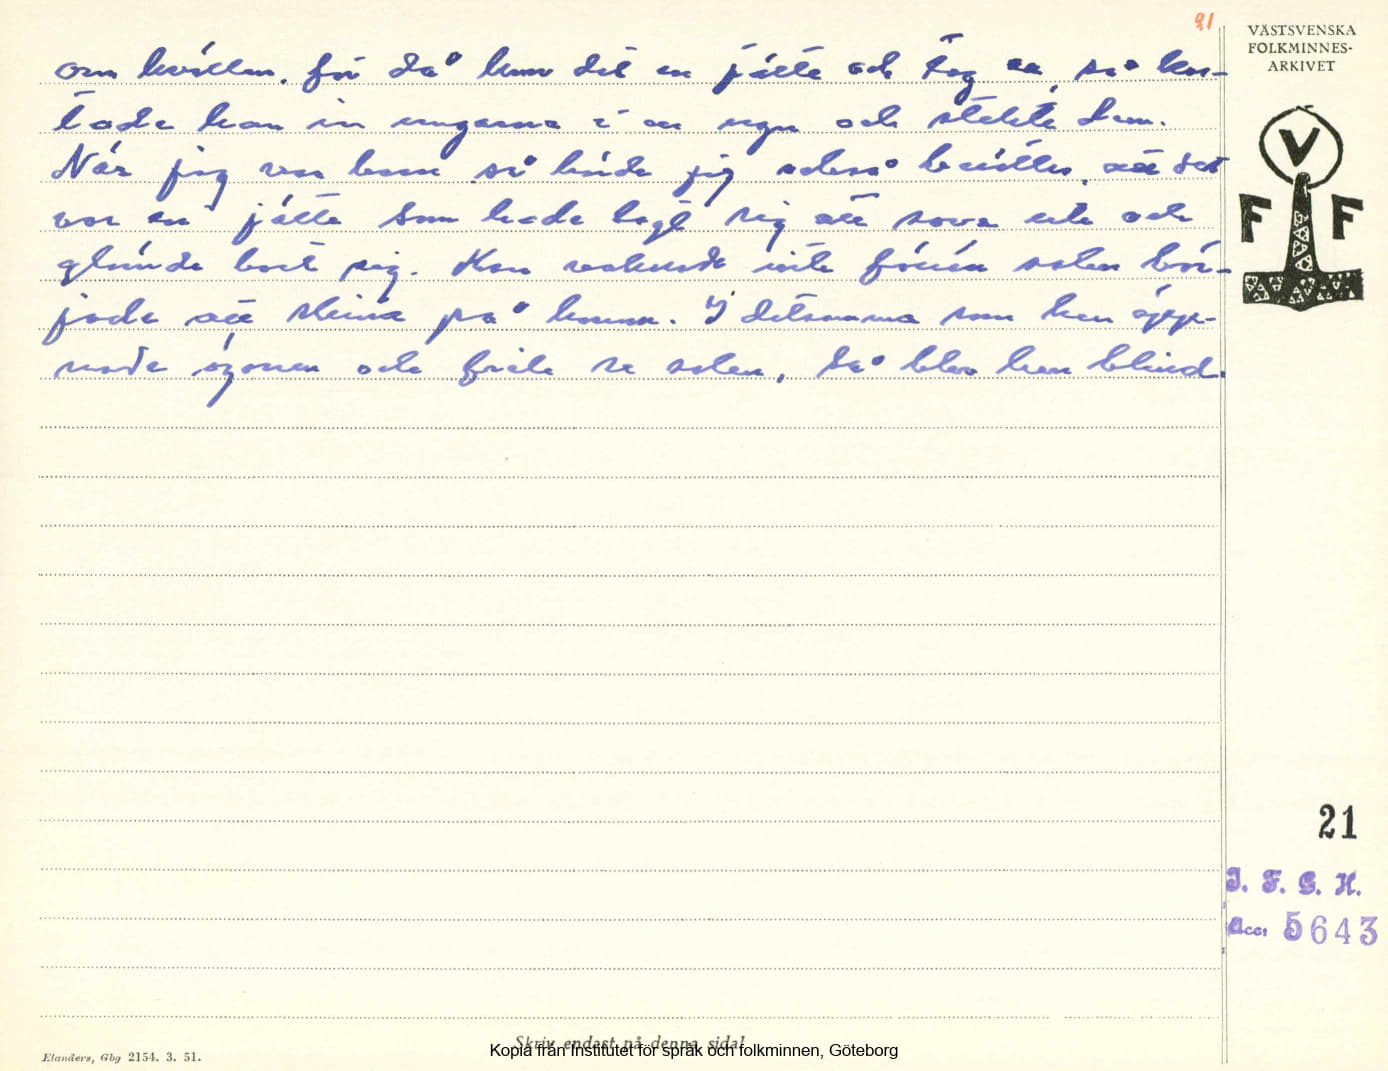 21
VÄSTSVENSKA
FOLKMINNES-
ARKIVET
V
F F
om kvällen, för då kom det en jätte och tog en, så kas-
tade han in ungarna i en ugn och stekte dem.
När jag var barn så hörde jag också berättas, att det
var en jätte som hade lagt sig att sova ute och
glömde bort sig. Han vaknade inte förrän solen bör-
jade att skina på honom. I detsamma som han öpp-
nade ögonen och fick se solen, så blev han blind.
21
I. F. G. H.
Acc: 5643
Skriv endast på denna sida!
Elanders, Gbg 2154. 3. 51.
Kopia från Institutet för språk och folkminnen, Göteborg